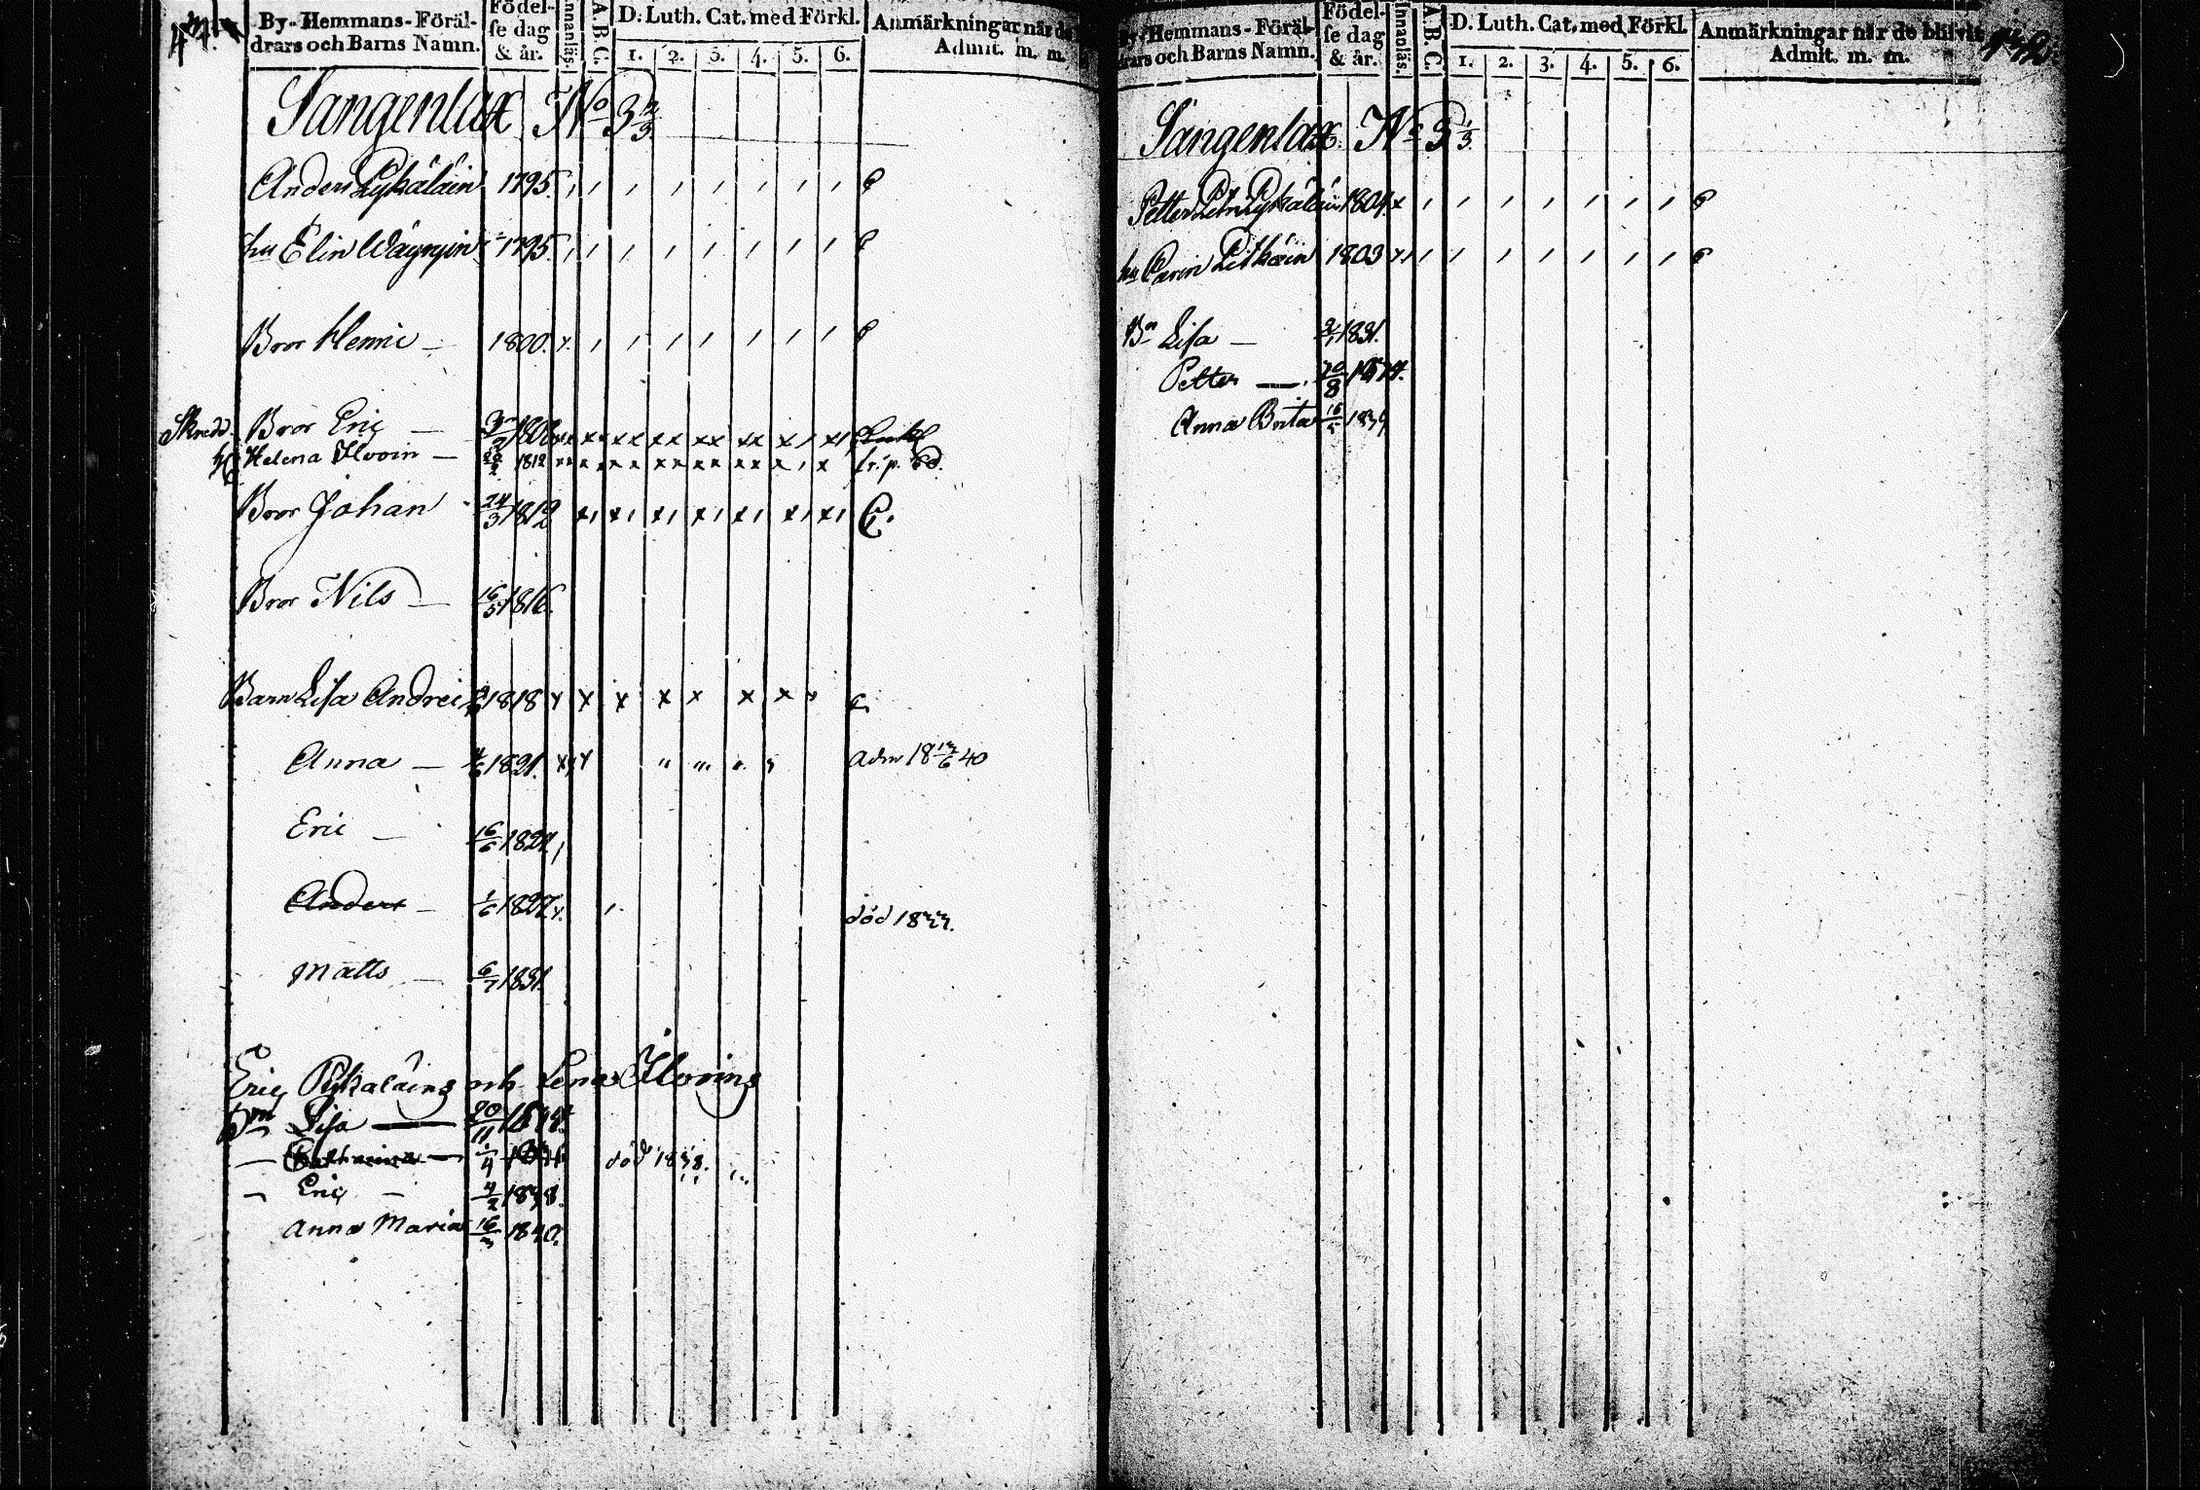 By-Hemmans-Föräl-
drars och Barns Namn.
Födel-
se dag
& år.
Innanläs.
A.B.C.
D. Luth. Cat. med Förkl.
1. 2. 3. 4. 5. 6.
Anmärkningar när de
Admit. m. m.
Sangenlax No 3 2/3
Anders Pykäläin 1795
hu Elin Wäyrynin 1795.
Bror Henric — 1800.
Bror Eric — 1808
Helena Ilvoin — 1812 fr. p.
Bror Johan 24/3 1812
Bror Nils — 16/5 1816.
Barn Lisa Andrei 1818
Anna — 1821. adm 18 /6 40
Eric — 16/6 1824
Anders — 1/6 1827 död 1833.
Matts — 6/7 1831.
Eric Pykäläins och Lena Ilvoins
Bn Lisa — 20/11 1834.
— Catharina — 1/4 1836 död 1838.
— Eric — 4/2 1838.
Anna Maria 16/3 1840.
By-Hemmans-Föräl-
drars och Barns Namn.
Födel-
se dag
& år.
Innanläs.
A.B.C.
D. Luth. Cat. med Förkl.
1. 2. 3. 4. 5. 6.
Anmärkningar när de blifvit
Admit. m. m.
Sangenlax No 3 1/3
Petter Pykäläin 1804
hu Carin Pitkäin 1803
Bn Lisa — 1831.
Petter — 20/8 1834.
Anna Brita 16/5 1839